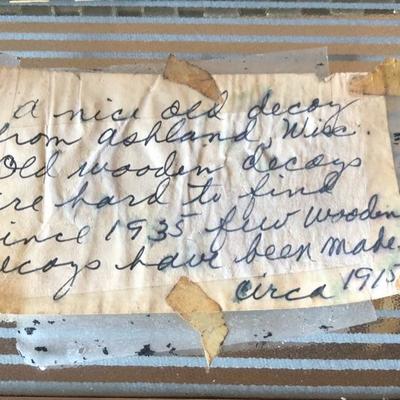 a nice old decoy
from ashland, Wisc.
Old wooden decoys
are hard to find
since 1935 few wooden
decoys have been made.
circa 1915